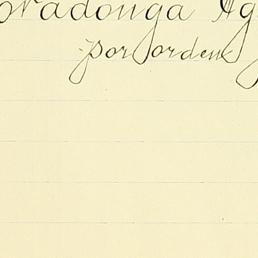 ovadonga Ag
por orden